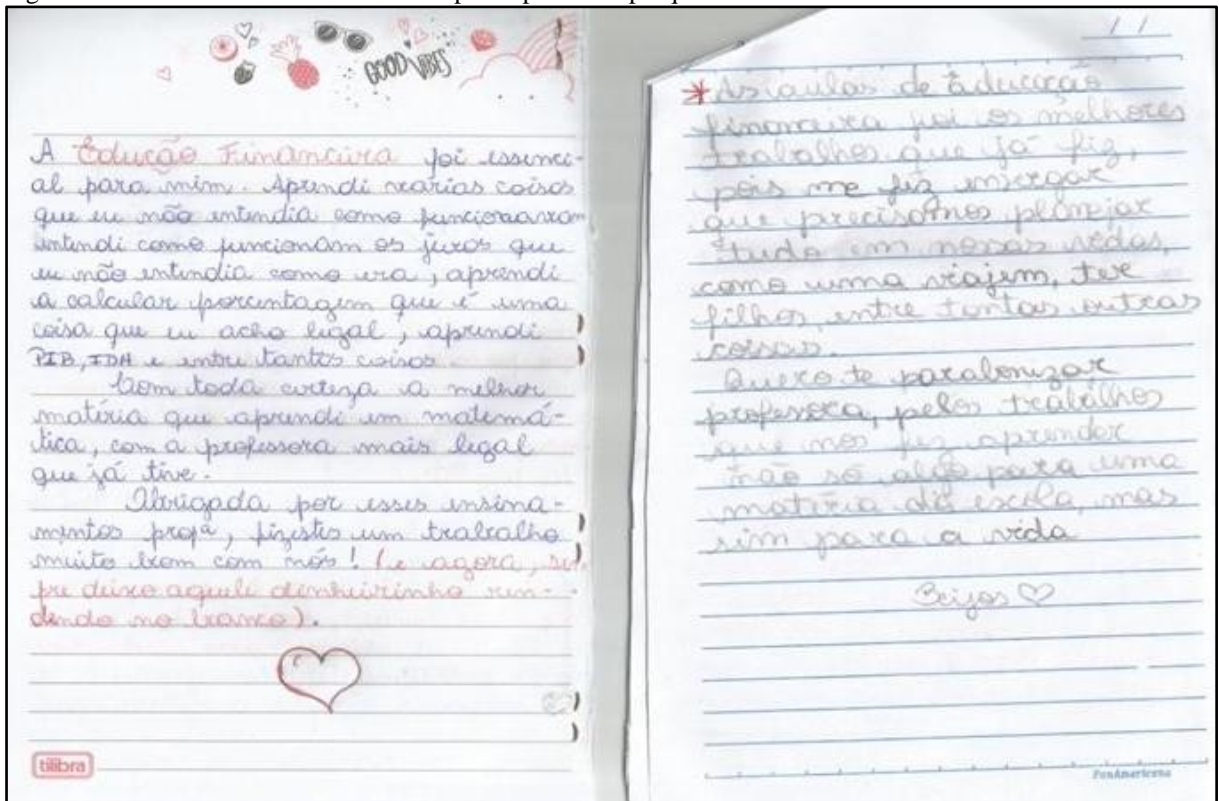 GOOD VIBES
A Educção Financeira foi essenci-
al para mim. Aprendi várias coisas
que eu não entendia como funcionavam
entendi como funcionam os juros que
eu não entendia como era, aprendi
a calcular porcentagem que é uma
coisa que eu acho legal, aprendi
PIB, IDH e entre tantos coisas.
Com toda certeza a melhor
matéria que aprendi em matemá-
tica, com a professora mais legal
que já tive.
Obrigada por esses ensina-
mentos profa, fizestes um trabalho
muito bom com nós! (e agora, sem
pre deixo aquele dinheirinho ren-
dendo no banco).
tilibra
/ /
* As aulas de Educação
financeira foi os melhores
trabalhos que já fiz,
pois me fez enxergar
que precisamos planejar
tudo em nossas vidas,
como uma viajem, ter
filhos, entre tantas outras
coisas.
Quero te parabenizar
professora, pelos trabalhos
que nos fez aprender
não só algo para uma
matéria da escola, mas
sim para a vida
Beijos ♡
PanAmericana